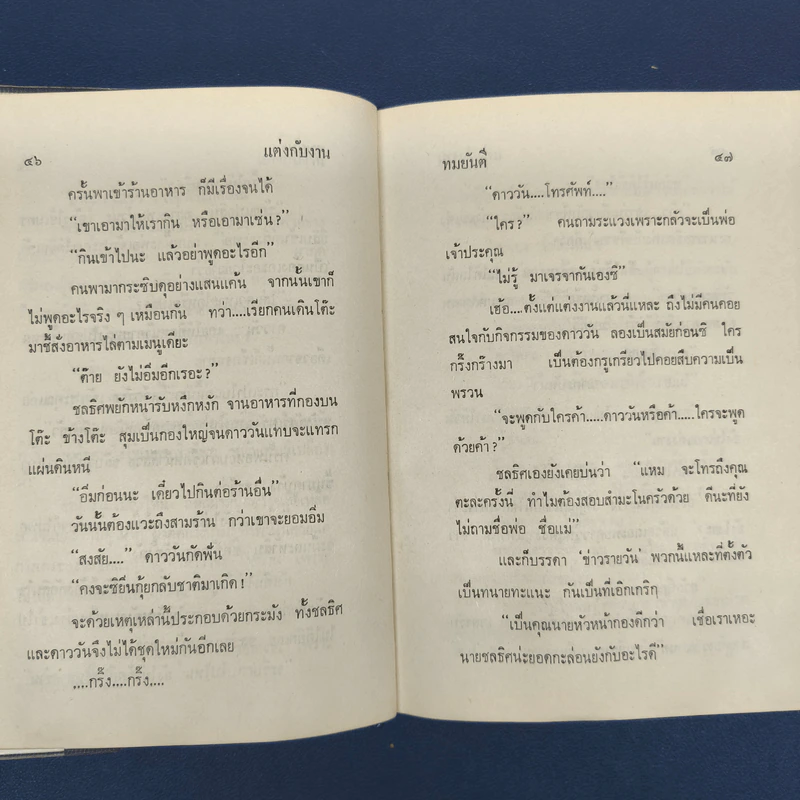 ๔๖ แต่งกับงาน
ครั้นพาเข้าร้านอาหาร ก็มีเรื่องจนได้
“เขาเอามาให้เรากิน หรือเอามาเซ่น?”
“กินเข้าไปนะ แล้วอย่าพูดอะไรอีก”
คนพามากระซิบดุอย่างแสนแค้น จากนั้นเขาก็
ไม่พูดอะไรจริง ๆ เหมือนกัน ทว่า....เรียกคนเดินโต๊ะ
มาชี้สั่งอาหารไล่ตามเมนูเดียะ
“ต๊าย ยังไม่อิ่มอีกเรอะ?”
ชลธิศพยักหน้ารับหงึกหงัก จานอาหารที่กองบน
โต๊ะ ข้างโต๊ะ สุมเป็นกองใหญ่จนดาววันแทบจะแทรก
แผ่นดินหนี
“อิ่มก่อนนะ เดี๋ยวไปกินต่อร้านอื่น”
วันนั้นต้องแวะถึงสามร้าน กว่าเขาจะยอมอิ่ม
“สงสัย....” ดาววันกัดฟัน
“คงจะซิยิ่นกุ้ยกลับชาติมาเกิด!”
จะด้วยเหตุเหล่านี้ประกอบด้วยกระมัง ทั้งชลธิศ
และดาววันจึงไม่ได้ชุดใหม่กันอีกเลย
....กริ๊ง....กริ๊ง....
ทมยันตี ๔๗
“ดาววัน....โทรศัพท์....”
“ใคร?” คนถามระแวงเพราะกลัวจะเป็นพ่อ
เจ้าประคุณ
“ไม่รู้ มาเจรจากันเองซิ”
เฮ้อ....ตั้งแต่แต่งงานแล้วนี่แหละ ถึงไม่มีคนคอย
สนใจกับกิจกรรมของดาววัน ลองเป็นสมัยก่อนซิ ใคร
กริ๊งกร๊างมา เป็นต้องกรูเกรียวไปคอยสืบความเป็น
พรวน
“จะพูดกับใครค้า.....ดาววันหรือค้า.....ใครจะพูด
ด้วยค้า?”
ชลธิศเองยังเคยบ่นว่า “แหม จะโทรถึงคุณ
ตะละครั้งนี่ ทำไมต้องสอบสำมะโนครัวด้วย ดีนะที่ยัง
ไม่ถามชื่อพ่อ ชื่อแม่”
และก็บรรดา ‘ข่าวรายวัน’ พวกนี้แหละที่ตั้งตัว
เป็นทนายทะแนะ กันเป็นที่เอิกเกริก
“เป็นคุณนายหัวหน้ากองดีกว่า เชื่อเราเหอะ
นายชลธิศน่ะยอดกะล่อนยังกับอะไรดี”